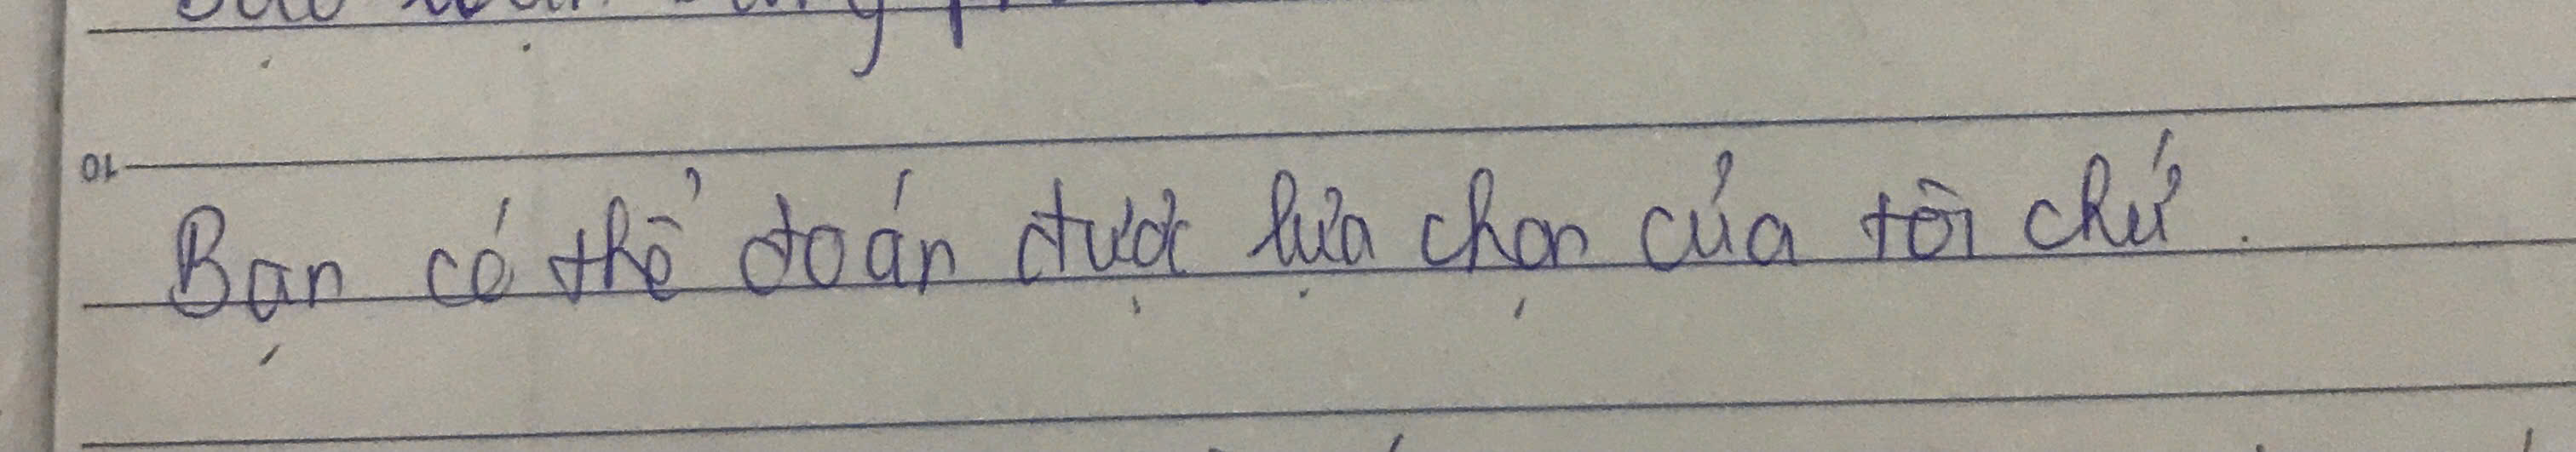 10
Bạn có thể đoán được lựa chọn của tôi chứ.